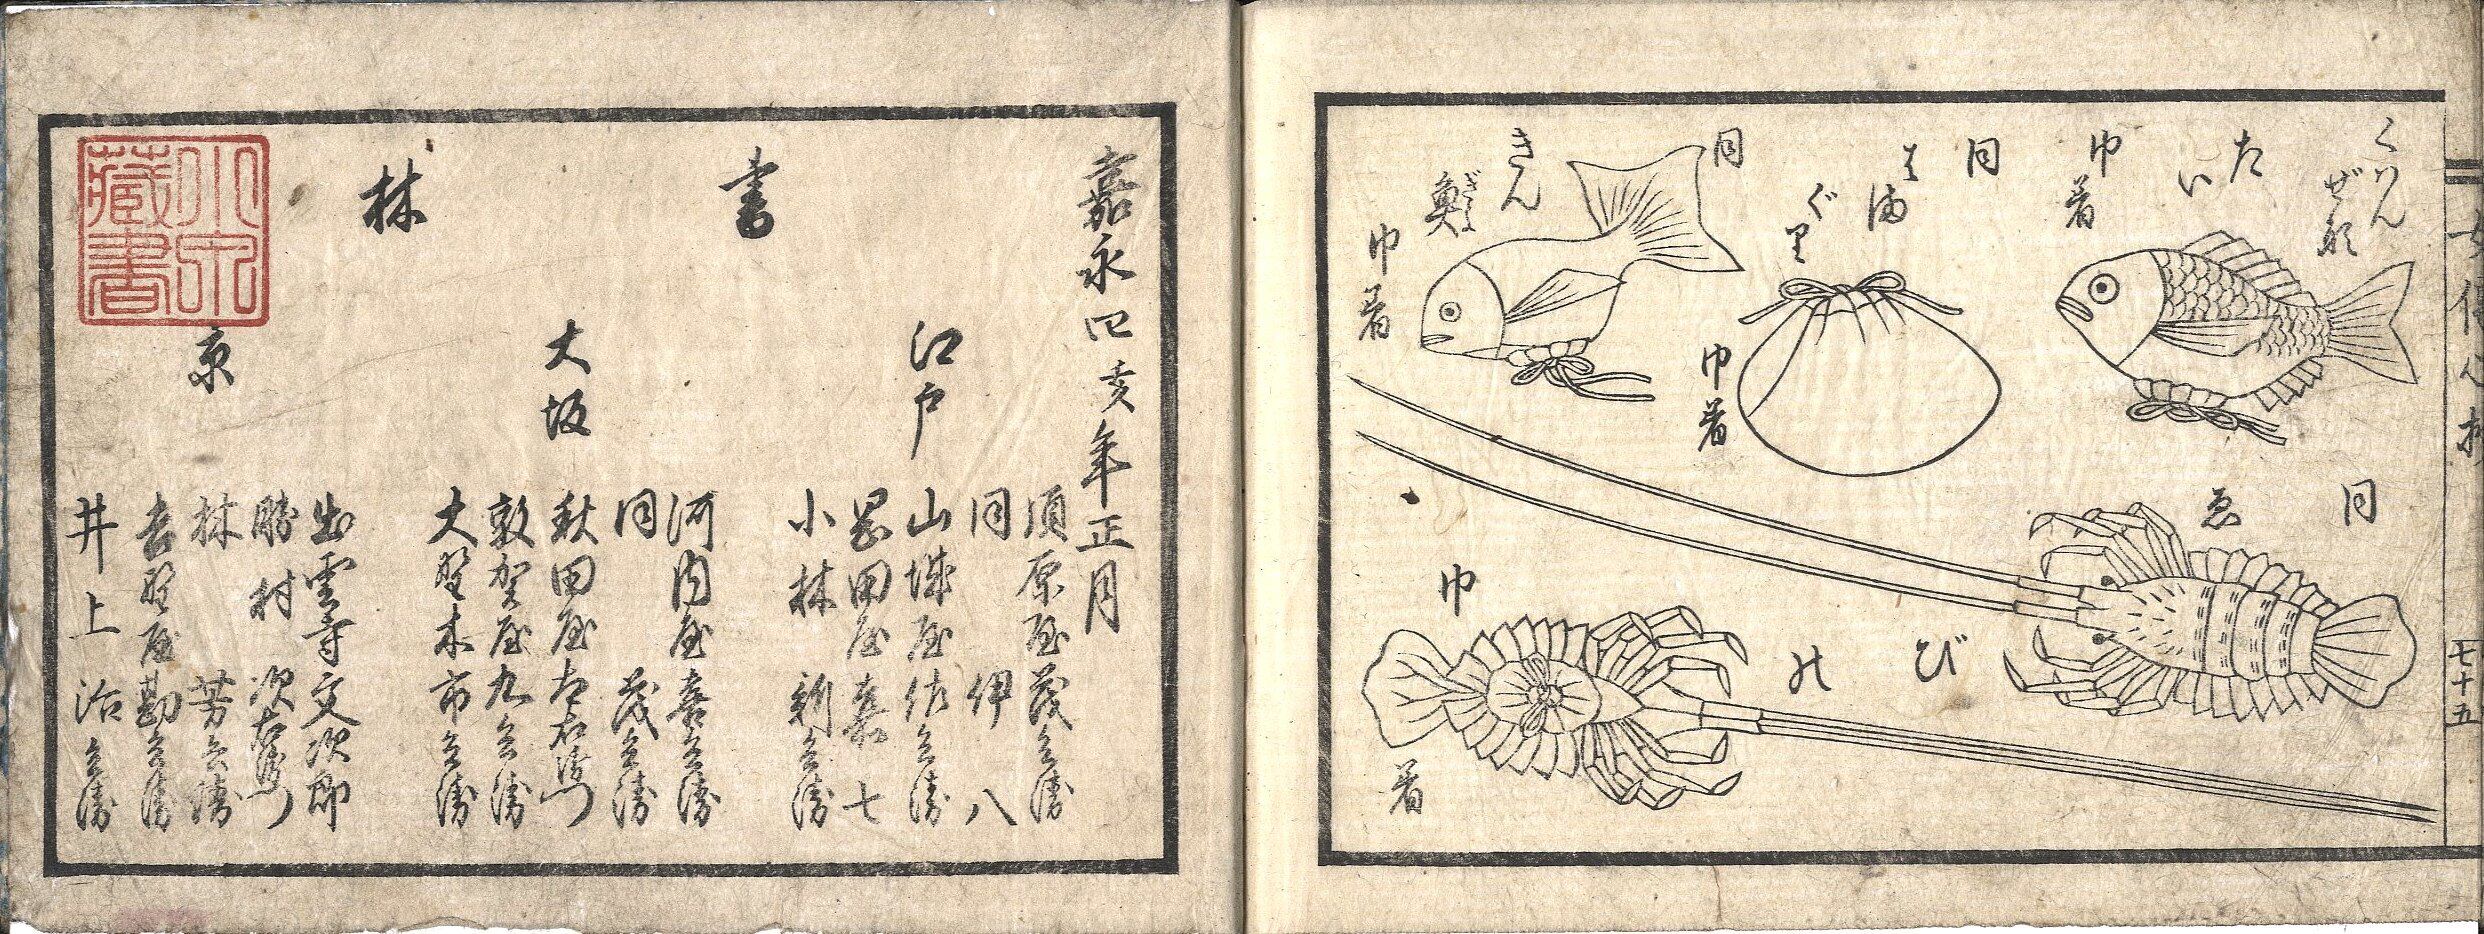 くハん
ぜ形
たい
巾着
同
はまぐり
巾着
同
きん
魚
ぎよ
巾着
同
ゑびの
巾着
七十五
嘉永四亥年正月
書林
江戸
須原屋茂兵衛
同伊八
山城屋佐兵衛
岡田屋嘉七
小林新兵衛
大坂
河内屋喜兵衛
同茂兵衛
秋田屋太右衛門
敦賀屋九兵衛
大野木市兵衛
京
出雲寺文次郎
勝村次右衛門
林芳兵衛
吉野屋勘兵衛
井上治兵衛
藏書